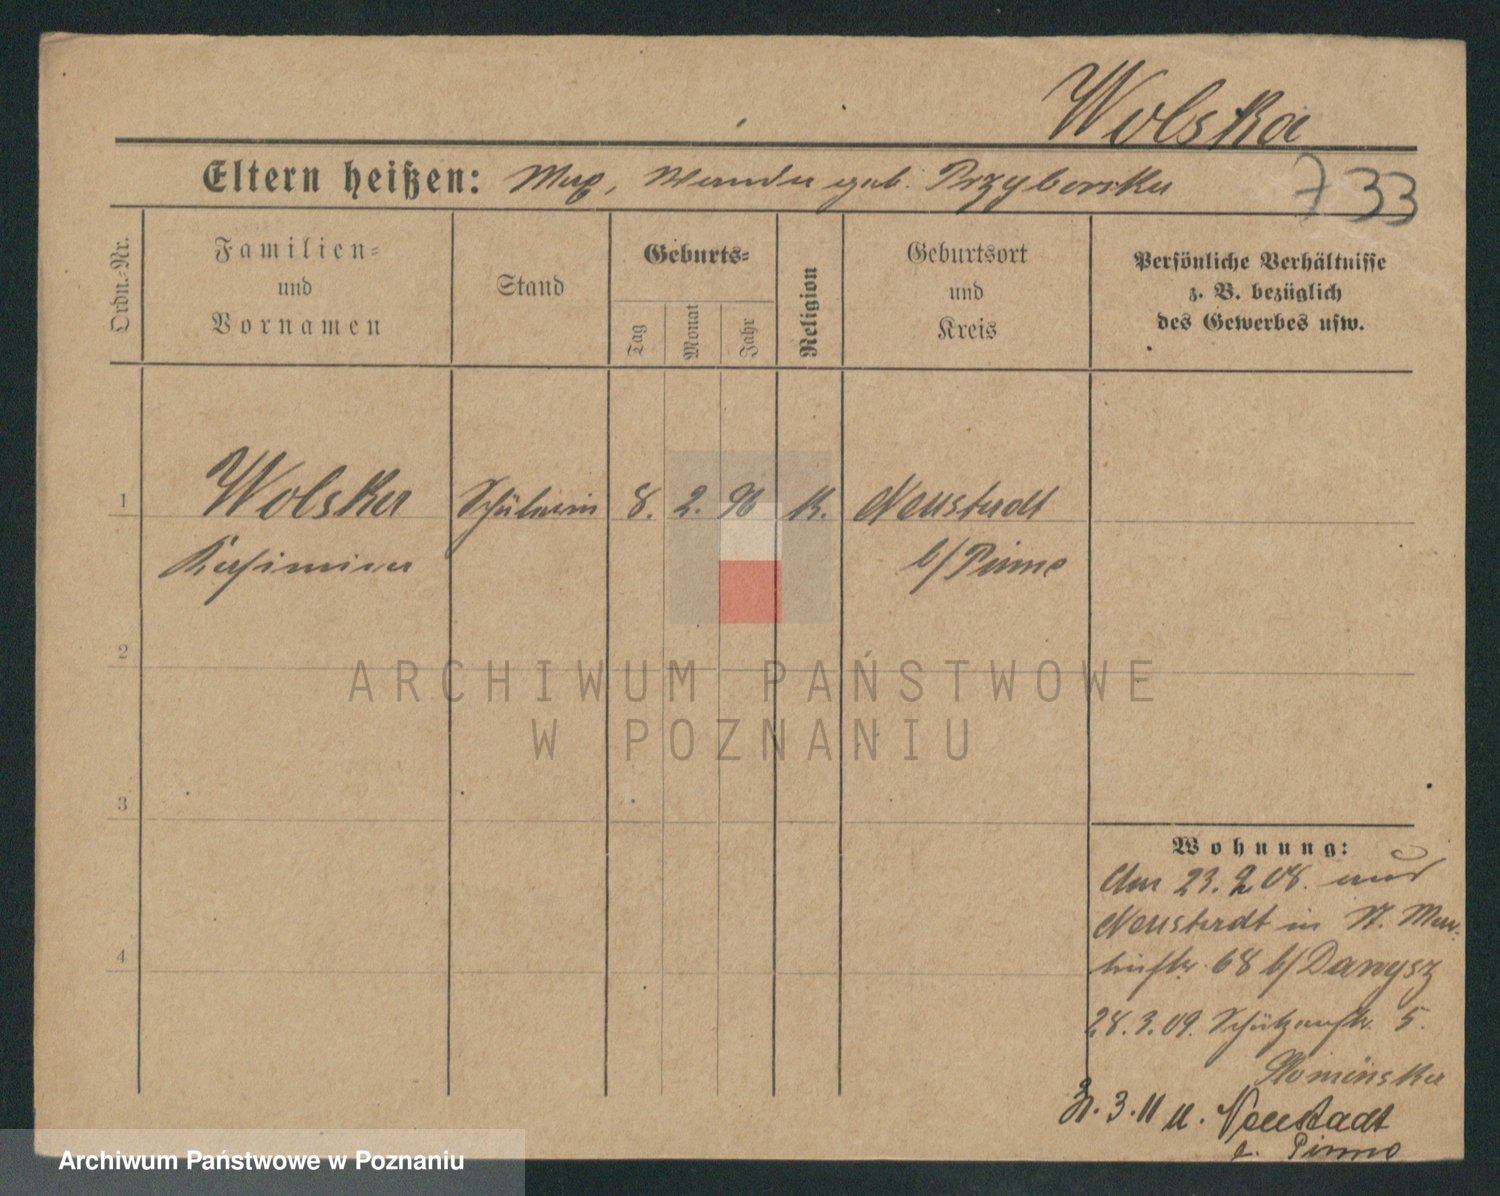 Wolska
Eltern heißen: Max, Wanda geb. Przyborska
733
Ordn.-Nr.
Familien-
und
Vornamen
Stand
Geburts-
Tag
Monat
Jahr
Religion
Geburtsort
und
Kreis
Persönliche Verhältnisse
z. B. bezüglich
des Gewerbes usw.
1
Wolska Schülerin 8. 2. 96 K. Neustadt
Kasimira b/Pinne
2
ARCHIWUM PAŃSTWOWE
W POZNANIU
3
4
Wohnung:
Am 23. 2 08. aus
Neustadt in St. Mar-
tinstr. 68 b/Danysz
28. 3. 09. Schützenstr. 5.
Slominska
3. 11 n. Neustadt
b. Pinne
Archiwum Państwowe w Poznaniu